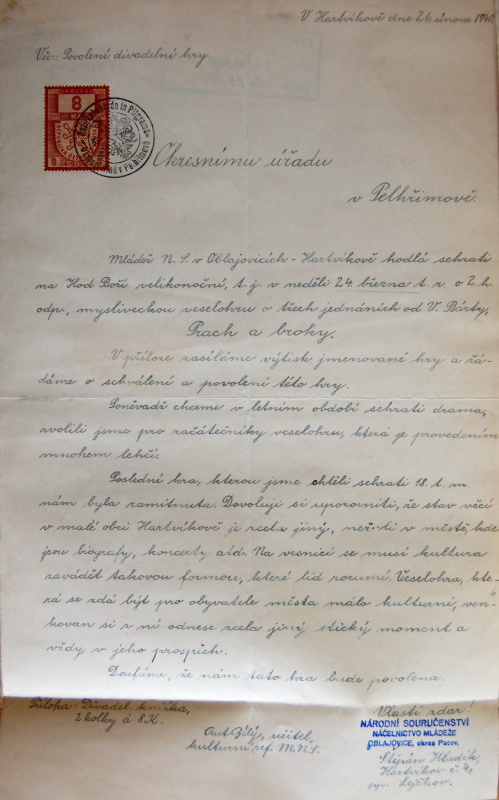 V Hartvíkově dne 26. února 1940
Věc: Povolení divadelní hry.
8
Okresnímu úřadu
v Pelhřimově.
Mládež N. S. v Oblajovicích - Hartvíkově hodlá sehrati
na Hod Boží velikonoční, t. j. v neděli 24. března t. r. o 2. h.
odp., mysliveckou veselohru o třech jednáních od V. Bárty,
Prach a broky.
V příloze zasíláme výtisk jmenované hry a žá-
dáme o schválení a povolení této hry.
Poněvadž chceme v letním období sehrati drama,
zvolili jsme pro začátečníky veselohru, která je provedením
mnohem lehčí.
Poslední hra, kterou jsme chtěli sehrati 18. t. m.
nám byla zamítnuta. Dovoluji si upozorniti, že stav věcí
v malé obci Hartvíkově je zcela jiný, nežli v městě, kde
jsou biografy, koncerty atd. Na vesnici se musí kultura
zavádět takovou formou, které lid rozumí. Veselohra, kte-
rá se zdá býti pro obyvatele města málo kulturní, ven-
kovan si z ní odnese zcela jiný etický moment a
vždy v jeho prospěch.
Doufáme, že nám tato hra bude povolena.
Příloha: Divadel. knížka,
2 kolky à 8 K.
Ant. Bílý, učitel,
kulturní ref. M.N.S.
Vlasti zdar!
NÁRODNÍ SOURUČENSTVÍ
NÁČELNICTVO MLÁDEŽE
OBLAJOVICE, okres Pacov.
Štěpán Hladík,
Hartvíkov č. 4,